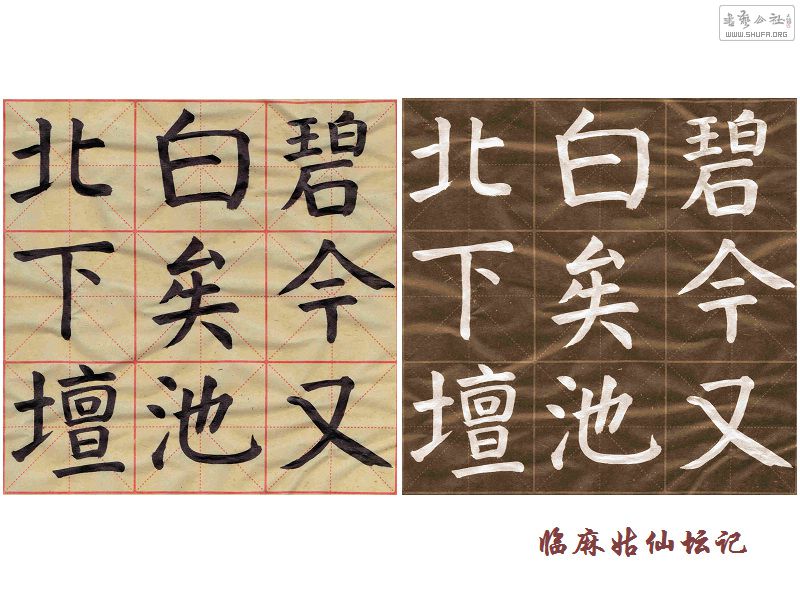 書藝公社
WWW.SHUFA.ORG
碧今又
白矣池
北下壇
碧今又
白矣池
北下壇
临麻姑仙坛记